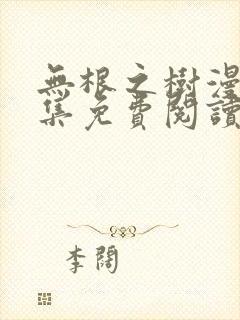 無根之樹漫
集免費閱讀
李闊